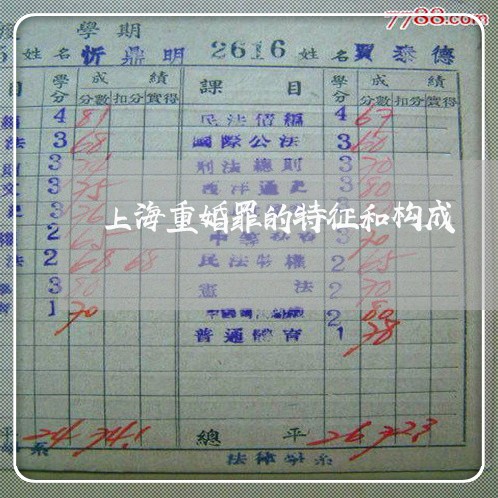 7788.com
學期
姓名 忻鼎明 2616 姓名 賈泰德
目 學分 成績 課目 學分 成績
分數 扣分 實得 分數 扣分 實得
4 81 民法債編 4 67
法 3 68 國際公法 3 60
3 刑法總則 3 70
3 75 西洋通史 3 80
3 76 3
上海重婚罪的特征和构成
2 65 3 70
法 2 68 68 民法物權 2 65
3 80 憲法 2 70
1 70 2 80
普通體育 1 78
平 24 74.1 總平 26 72.3
系 法律學系